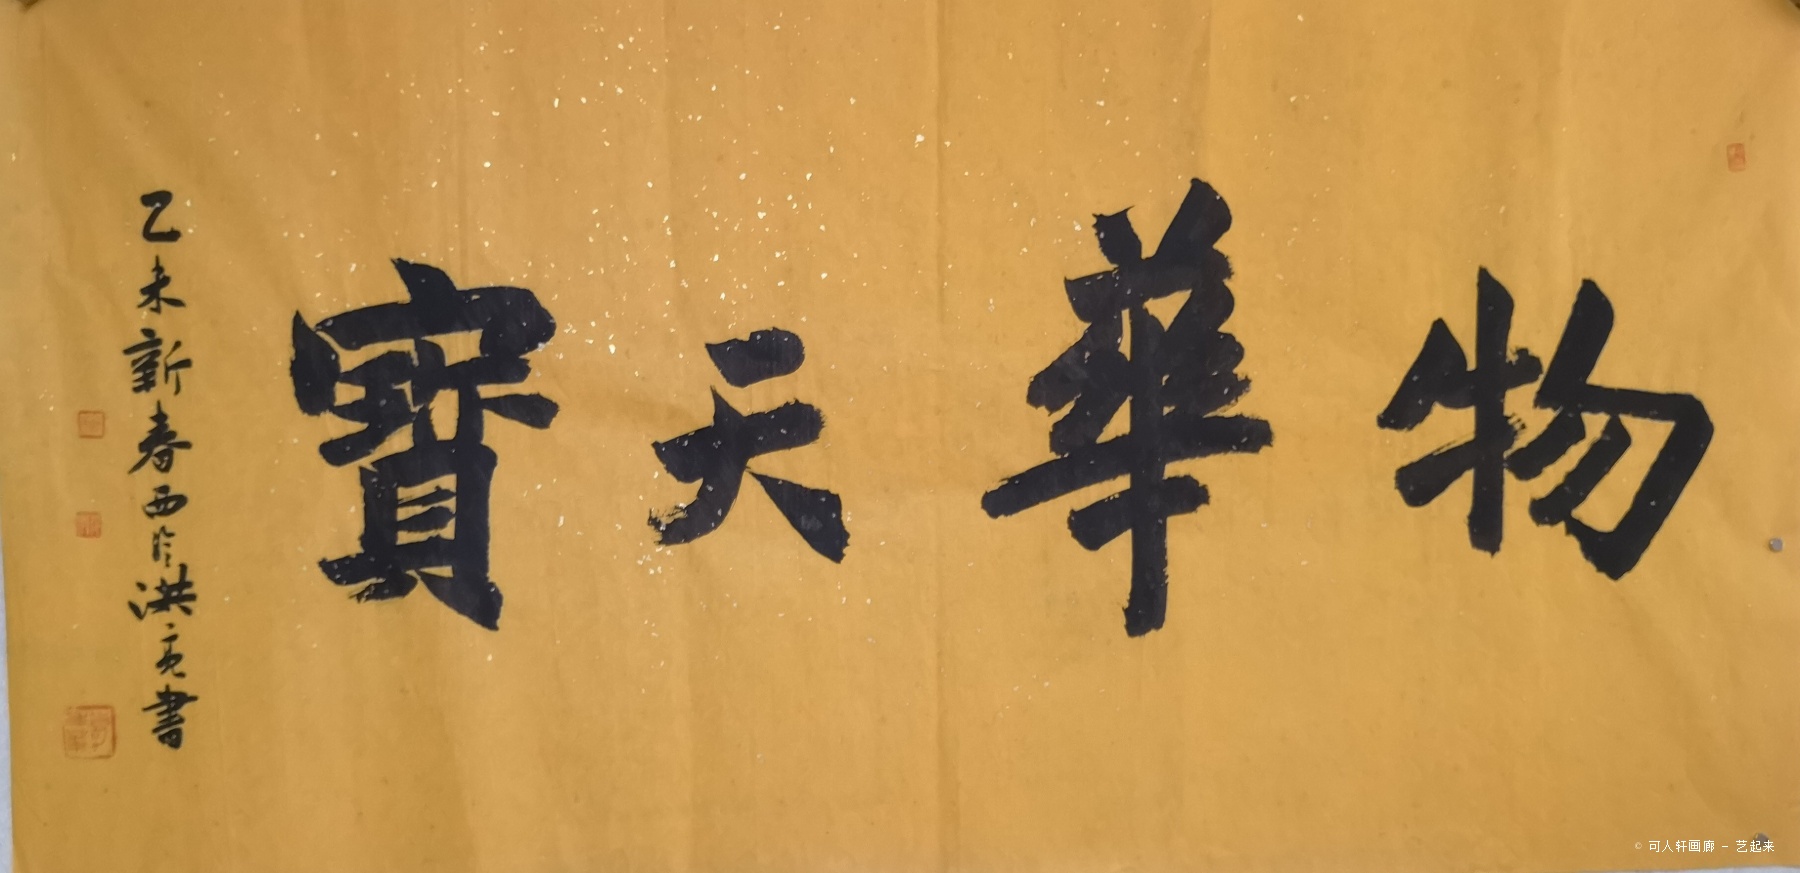 物華天寶
乙未新春西泠洪亮書
© 可人轩画廊 - 艺起来